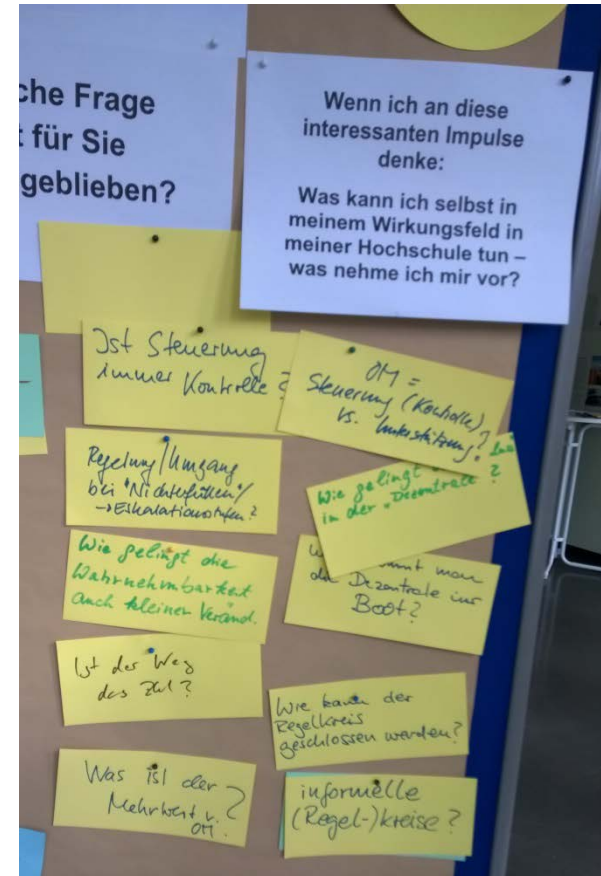 che Frage
t für Sie
geblieben?
Wenn ich an diese
interessanten Impulse
denke:
Was kann ich selbst in
meinem Wirkungsfeld in
meiner Hochschule tun –
was nehme ich mir vor?
Ist Steuerung
immer Kontrolle?
OM =
Steuerung (Kontrolle)
vs. Unterstützung?
Regelung/Umgang
bei "Nichterfüllen"/
→Eskalationsstufen?
Wie gelingt
in der "Dezentrale"?
Wie gelingt die
Wahrnehmbarkeit
auch kleiner Veränd.
man
die Dezentrale ins
Boot?
Ist der Weg
das Ziel?
Wie kann der
Regelkreis
geschlossen werden?
Was ist der
Mehrwert v.
OM?
informelle
(Regel-)kreise?